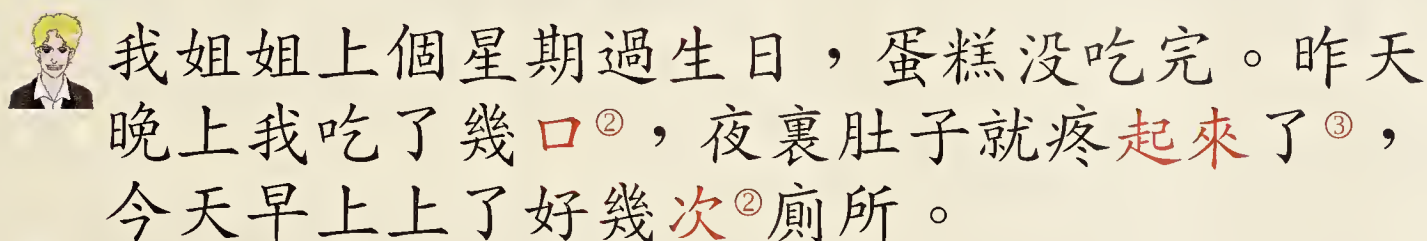 我姐姐上個星期過生日，蛋糕没吃完。昨天
晚上我吃了幾口②，夜裏肚子就疼起來了③，
今天早上上了好幾次②廁所。